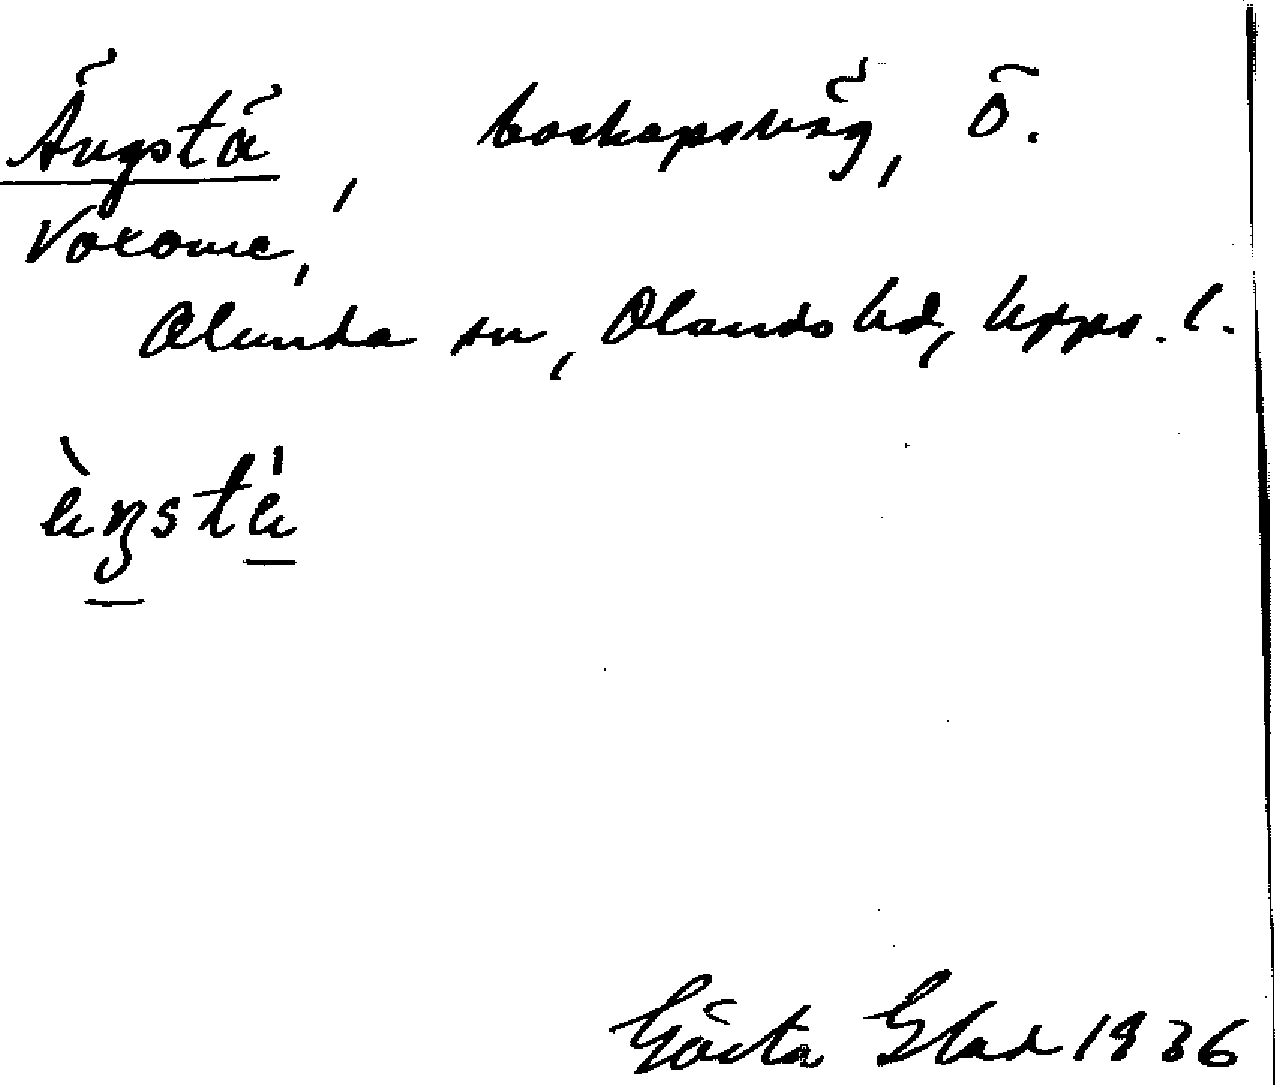 Ängstä, boskapsväg, Ö.
Voxome,
Alunda sn, Olands hd, Upps. l.
ä̀ŋstä́
Gösta Glad 1936